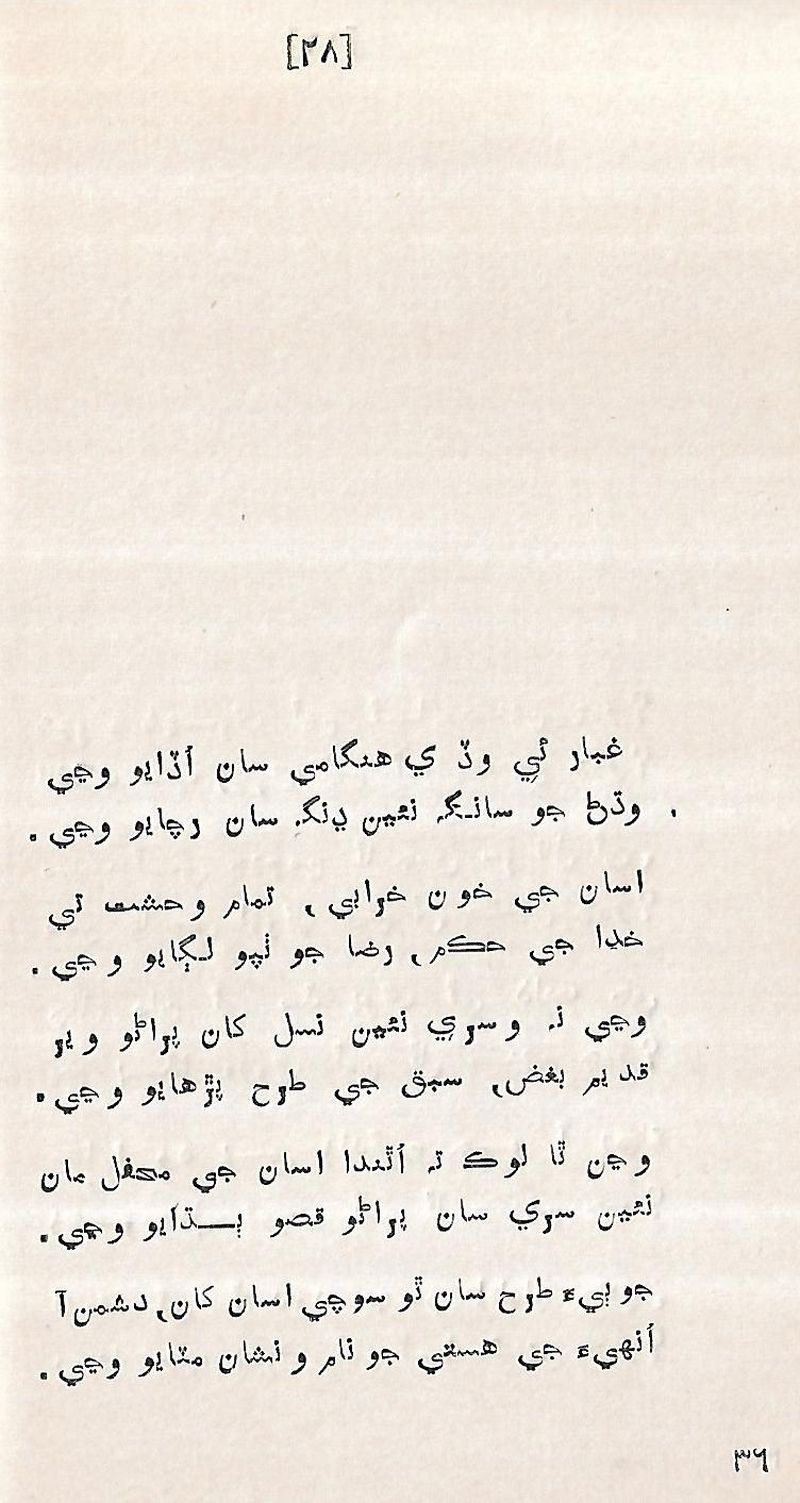 [۲۸]
غبار ئي وڏي هنگامي سان اُڏايو وڃي
وڌڻ جو سانگه نئين ڍنگه سان رچايو وڃي.
اسان جي خون خرابي، تمام وحشت تي
خدا جي حڪم، رضا جو ٺپو لڳايو وڃي.
وڃي نه وسري نئين نسل کان پراڻو وير
قديم بغض، سبق جي طرح پڙهايو وڃي.
وڃن ٿا لوڪ ته اُٿندا اسان جي محفل مان
نئين سري سان پراڻو قصو ٻــڌايو وڃي.
جو ٻيءَ طرح سان ٿو سوچي اسان کان، دشمن آ
اُنهيءَ جي هستي جو نام و نشان مٽايو وڃي.
۳٦